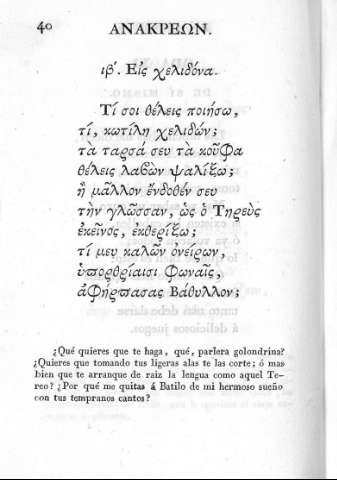 40 ΑΝΑΚΡΕΩΝ.
ιβ'. Εἰς χελιδόνα.
Τί σοι θέλεις ποιήσω,
τί, κωτίλη χελιδών;
τὰ ταρσά σευ τὰ κοῦφα
θέλεις λαβὼν ψαλίξω;
ἢ μᾶλλον ἔνδοθέν σευ
τὴν γλῶσσαν, ὡς ὁ Τηρεὺς
ἐκεῖνος, ἐκθερίξω;
τί μευ καλῶν ὀνείρων,
ὑπορθρίαισι φωναῖς,
ἀφήρπασας Βάθυλλον;
¿Qué quieres que te haga, qué, parlera golondrina?
¿Quieres que tomando tus ligeras alas te las corte; ó mas
bien que te arranque de raiz la lengua como aquel Te-
reo? ¿Por qué me quitas á Batilo de mi hermoso sueño
con tus tempranos cantos?